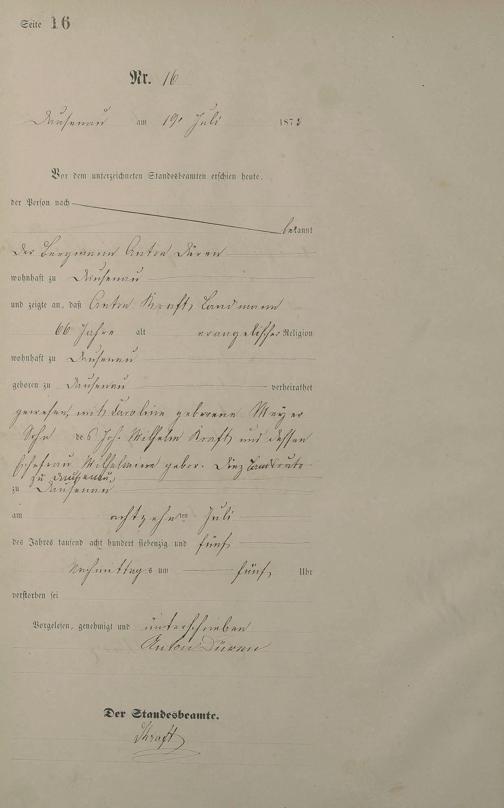 Seite 16
Nr. 16
Dausenau am 19. Juli 187
Vor dem unterzeichneten Standesbeamten erschien heute,
der Person nach
bekannt
der Bergmann Anton
wohnhaft zu Dausenau
und zeigte an, daß Anton Kraft, Landmann
66 Jahre alt evangelischer Religion
wohnhaft zu Dausenau
geboren zu Dausenau verheirathet
gewesen mit Caroline geborene Meyer
Sohn des Joh. Wilhelm Kraft und dessen
Ehefrau Wilhelmine gebor. Landleute
zu Dausenau
zu Dausenau
am achtzehnten Juli
des Jahres tausend acht hundert siebenzig und fünf
Nachmittags um fünf Uhr
verstorben sei
Vorgelesen, genehmigt und unterschrieben
Anton
Der Standesbeamte.
Kraft